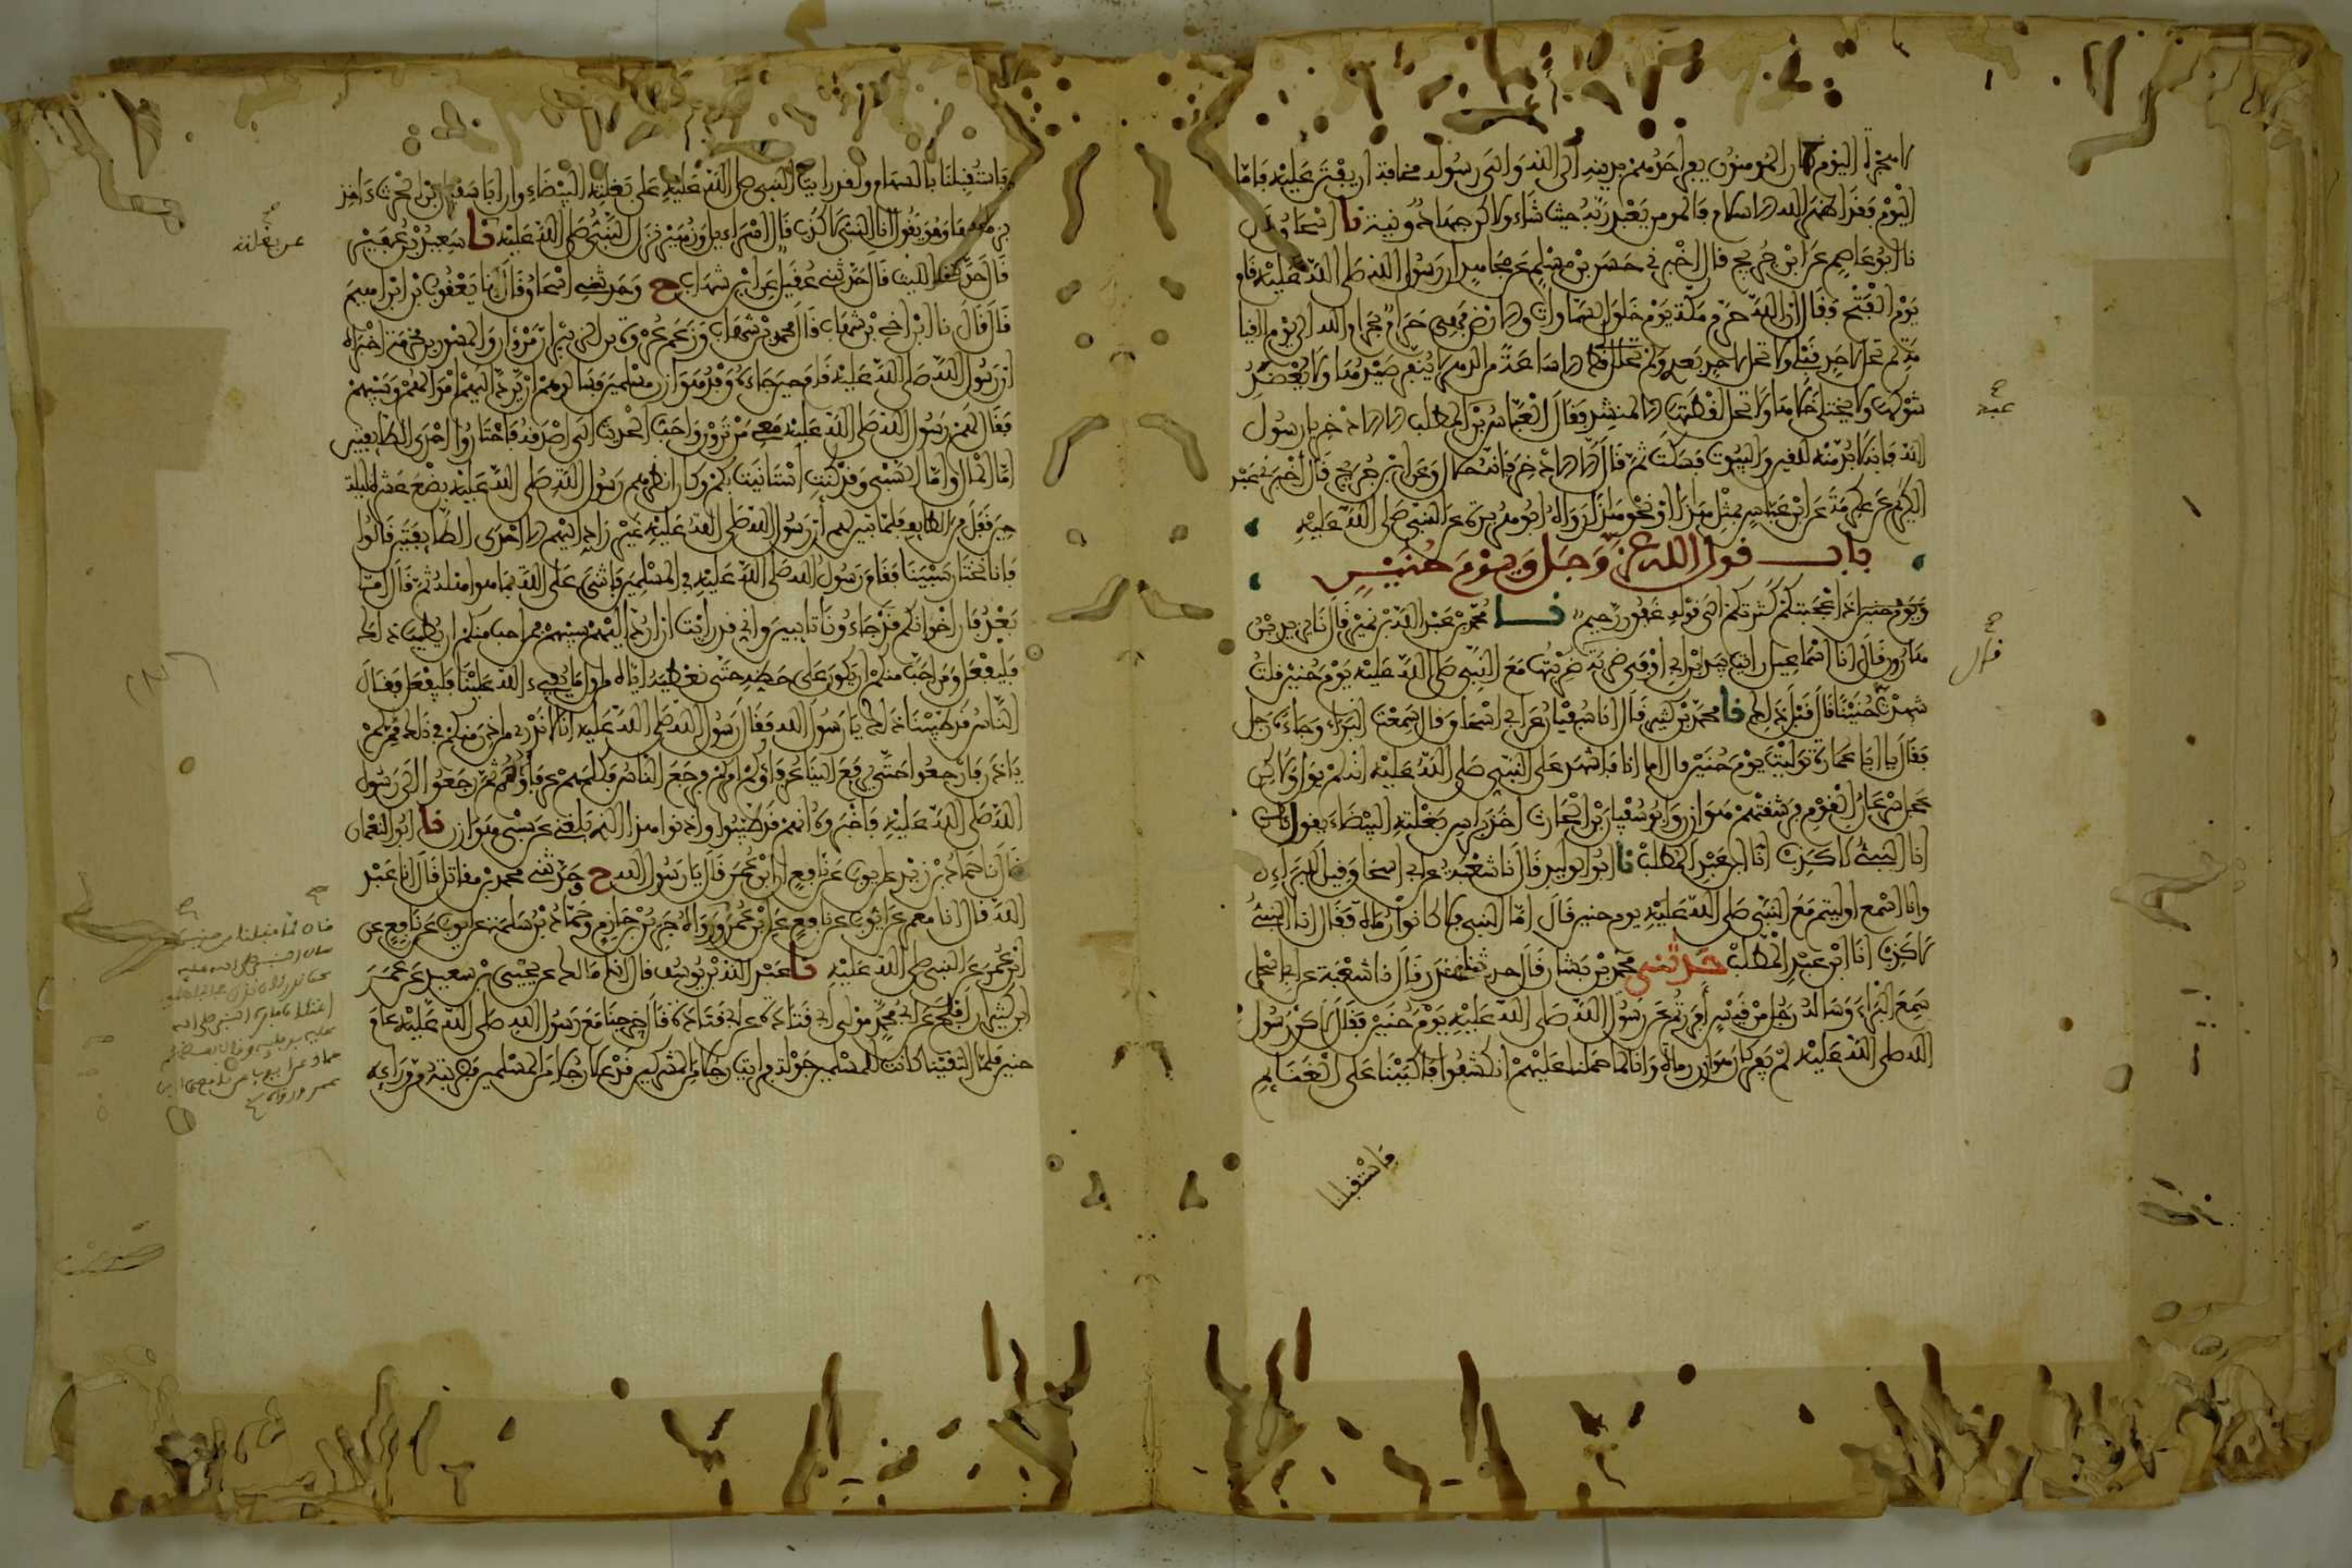 لا هجرة اليوم كان المومنون يفر احدهم بدينه الى الله والى رسوله مخافة ان يفتن عليه فاما
اليوم فقد اظهر الله الاسلام فالمومن يعبد ربه حيث شاء ولاكن جهاد ونية نا اسحاق
نا ابو عاصم عن ابن جريج قال اخبرني حسن بن مسلم عن مجاهد ان رسول الله صلى الله عليه قام
يوم الفتح فقال ان الله حرم مكة يوم خلق السماوات والارض فهي حرام بحرام الله الى يوم القيا
مة لم تحل لاحد قبلي ولا تحل لاحد بعدي ولم تحلل لي الا ساعة من الدهر لا ينفر صيدها ولا يعضد
شوكها ولا يختلى خلاها ولا تحل لقطتها الا لمنشد فقال العباس بن عبد المطلب الا الاذخر يا رسول
الله فانه لا بد منه للقين والبيوت فسكت ثم قال الا الاذخر فانه حلال وعن ابن جريج قال اخبرني عبد
الكريم عن عكرمة عن ابن عباس بمثل هذا او نحو هذا رواه ابو هريرة عن النبي صلى الله عليه
باب قول الله عز وجل ويوم حنين
ويوم حنين اذ اعجبتكم كثرتكم الى قوله غفور رحيم نا محمد بن عبد الله بن نمير قال نا يزيد بن
هارون قال انا اسماعيل رايت بيد ابن ابي اوفى ضربة قال ضربتها مع النبي صلى الله عليه يوم حنين قلت
شهدت حنينا قال قبل ذلك نا محمد بن كثير قال انا سفيان عن ابي اسحاق قال سمعت البراء وجاءه رجل
فقال يا ابا عمارة توليت يوم حنين قال اما انا فاشهد على النبي صلى الله عليه انه لم يول ولاكن
عجل سرعان القوم فرشقتهم هوازن وابو سفيان بن الحارث اخذ براس بغلته البيضاء يقول
انا النبي لا كذب انا ابن عبد المطلب نا ابو الوليد قال نا شعبة عن ابي اسحاق قيل للبراء
وانا اسمع اوليتم مع النبي صلى الله عليه يوم حنين قال اما النبي فلا كانوا رماة فقال انا النبي
لا كذب انا ابن عبد المطلب حدثني محمد بن بشار قال حدثنا غندر قال نا شعبة عن ابي اسحاق
سمع البراء وساله رجل من قيس افررتم عن رسول الله صلى الله عليه يوم حنين فقال لاكن رسول
الله صلى الله عليه لم يفر كان هوازن رماة وانا لما حملنا عليهم انكشفوا فاكببنا على الغنايم
فاستقبلنا
عبد
قال
فاستقبلنا بالسهام ولقد رايت النبي صلى الله عليه على بغلته البيضاء وان ابا سفين بن الحرث ءاخذ
بزمامها وهو يقول انا النبي لا كذب قال اسراءيل وزهير نزل النبي صلى الله عليه نا سعيد بن عفير
قال حدثني الليث قال حدثني عقيل عن ابن شهاب ح وحدثني اسحاق قال نا يعقوب بن ابراهيم
قال قال نا ابن اخي بن شهاب قال محمد بن شهاب وزعم عروة بن الزبير ان مروان والمسور بن مخرمة اخبراه
ان رسول الله صلى الله عليه قام حين جاءه وفد هوازن مسلمين فسالوه ان يرد اليهم اموالهم وسبيهم
فقال لهم رسول الله صلى الله عليه معي من ترون واحب الحديث الي اصدقه فاختاروا احدى الطايفتين
اما المال واما السبي وقد كنت استانيت بكم وكان انظرهم رسول الله صلى الله عليه بضع عشرة ليلة
حين قفل من الطايف فلما تبين لهم ان رسول الله صلى الله عليه غير راد اليهم الا احدى الطايفتين قالوا
فانا نختار سبينا فقام رسول الله صلى الله عليه في المسلمين فاثنى على الله بما هو اهله ثم قال اما
بعد فان اخوانكم قد جاءونا تايبين واني قد رايت ان ارد اليهم سبيهم فمن احب منكم ان يطيب ذلك
فليفعل ومن احب منكم ان يكون على حظه حتى نعطيه اياه من اول ما يفيء الله علينا فليفعل فقال
الناس قد طيبنا ذلك يا رسول الله فقال رسول الله صلى الله عليه انا لا ندري من اذن منكم في ذلك ممن لم
ياذن فارجعوا حتى يرفع الينا عرفاؤكم امركم فرجع الناس فكلمهم عرفاؤهم ثم رجعوا الى رسول
الله صلى الله عليه فاخبروه انهم قد طيبوا واذنوا هذا الذي بلغني عن سبي هوازن نا ابو النعمان
قال نا حماد بن زيد عن ايوب عن نافع ان ابن عمر قال يا رسول الله ح وحدثني محمد بن مقاتل قال انا عبد
الله قال انا معمر عن ايوب عن نافع عن ابن عمر ورواه جرير بن حازم وحماد بن سلمة عن ايوب عن نافع عن
ابن عمر عن النبي صلى الله عليه نا عبد الله بن يوسف قال انا مالك عن يحيى بن سعيد عن عمر
ابن كثير بن افلح عن ابي محمد مولى ابي قتادة عن ابي قتادة قال خرجنا مع رسول الله صلى الله عليه عام
حنين فلما التقينا كانت للمسلمين جولة فرايت رجلا من المشركين قد علا رجلا من المسلمين فضربته من وراءه
عن بغلته
قال لما قفلنا من حنين